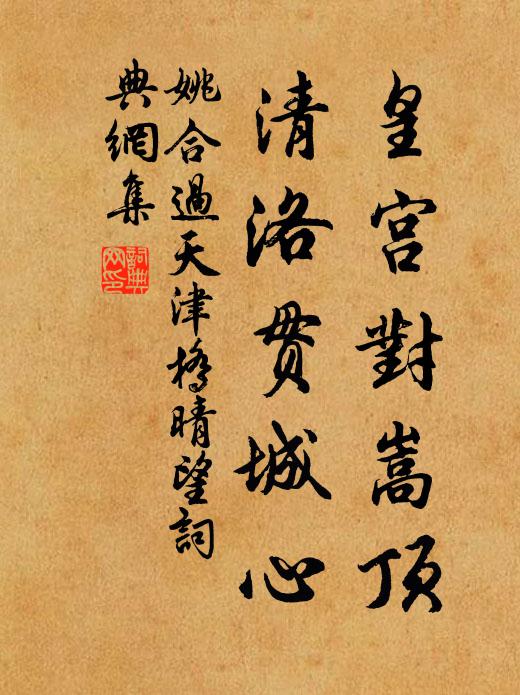 皇宮對嵩頂
清洛贯城心
姚合過天津橋晴望詞
典網集
詞典
网印